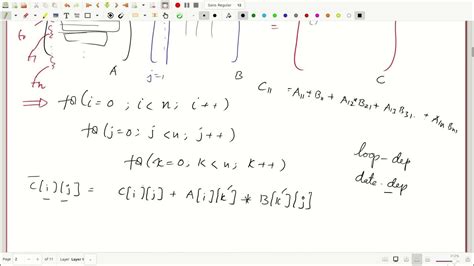 Sans Regular
A
j=1
B
C
C11 = A11 * B11 + A12 * B21 + A13 B31 . . + A1n Bn1
⇒ for (i=0; i<n; i++)
for (j=0; j<n; j++)
for (k=0; k<n; k++)
C[i][j] = C[i][j] + A[i][k] * B[k][j]
loop-dep
date-dep
Page
2
of 11
Layer